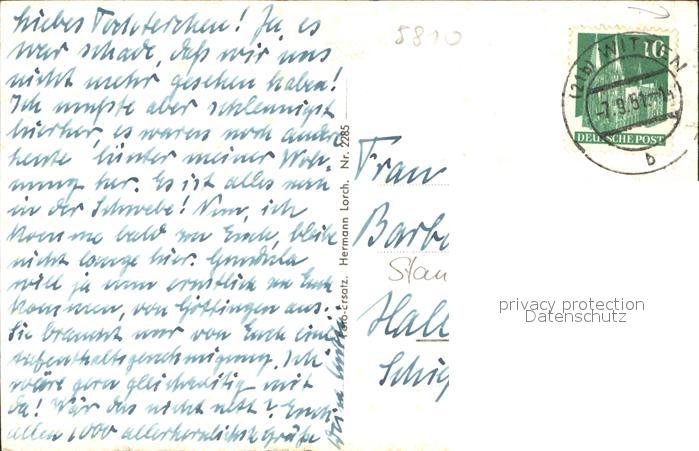 liebes Töchterchen! Ja, es
war schade, daß wir uns
nicht mehr gesehen haben!
Ich mußte aber schleunigst
hierher, es waren noch andere
heute hinter meiner Woh-
nung her. Es ist alles nun
in der Schwebe! Nun, ich
komme bald zu Euch, bleibe
nicht lange hier.
will ja nun ernstlich zu Euch
kommen, von Göttingen aus.
Sie braucht nur von Euch eine
Aufenthaltsgenehmigung. Ich
wäre gern gleichzeitig mit
da! Wär das nicht nett? Euch
allen 1000 allerherzlichste Grüße
Foto-Ersatz. Hermann Lorch. Nr. 2285
5810
(21b) WITTEN
-7.9.51
b
10
DEUTSCHE POST
Frau
Barb
Stan
Hall
Schieß
privacy protection
Datenschutz